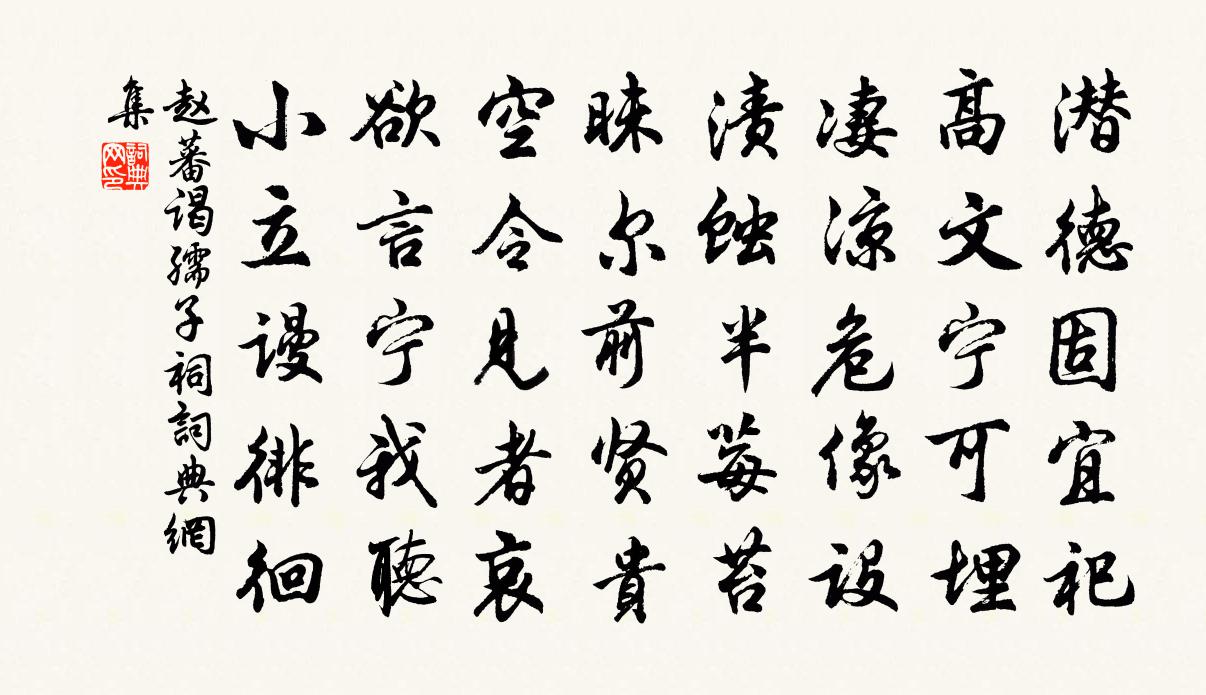 潜德固宜祀
高文宁可埋
凄凉危像设
渍蚀半莓苔
昧尔前贤贵
空令见者哀
欲言宁我聽
小立谩徘徊
赵蕃谒孺子祠詞典網
集
詞典
网印